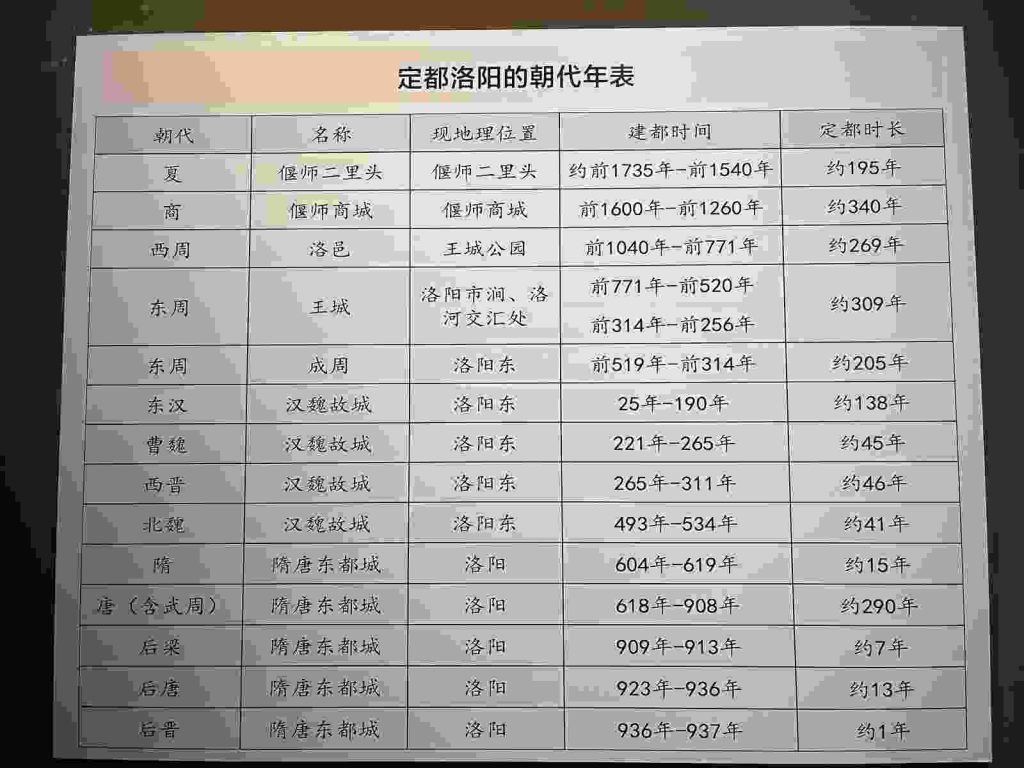 定都洛阳的朝代年表
朝代 名称 现地理位置 建都时间 定都时长
夏 偃师二里头 偃师二里头 约前1735年-前1540年 约195年
商 偃师商城 偃师商城 前1600年-前1260年 约340年
西周 洛邑 王城公园 前1040年-前771年 约269年
东周 王城 洛阳市涧、洛河交汇处 前771年-前520年 前314年-前256年 约309年
东周 成周 洛阳东 前519年-前314年 约205年
东汉 汉魏故城 洛阳东 25年-190年 约138年
曹魏 汉魏故城 洛阳东 221年-265年 约45年
西晋 汉魏故城 洛阳东 265年-311年 约46年
北魏 汉魏故城 洛阳东 493年-534年 约41年
隋 隋唐东都城 洛阳 604年-619年 约15年
唐（含武周） 隋唐东都城 洛阳 618年-908年 约290年
后梁 隋唐东都城 洛阳 909年-913年 约7年
后唐 隋唐东都城 洛阳 923年-936年 约13年
后晋 隋唐东都城 洛阳 936年-937年 约1年